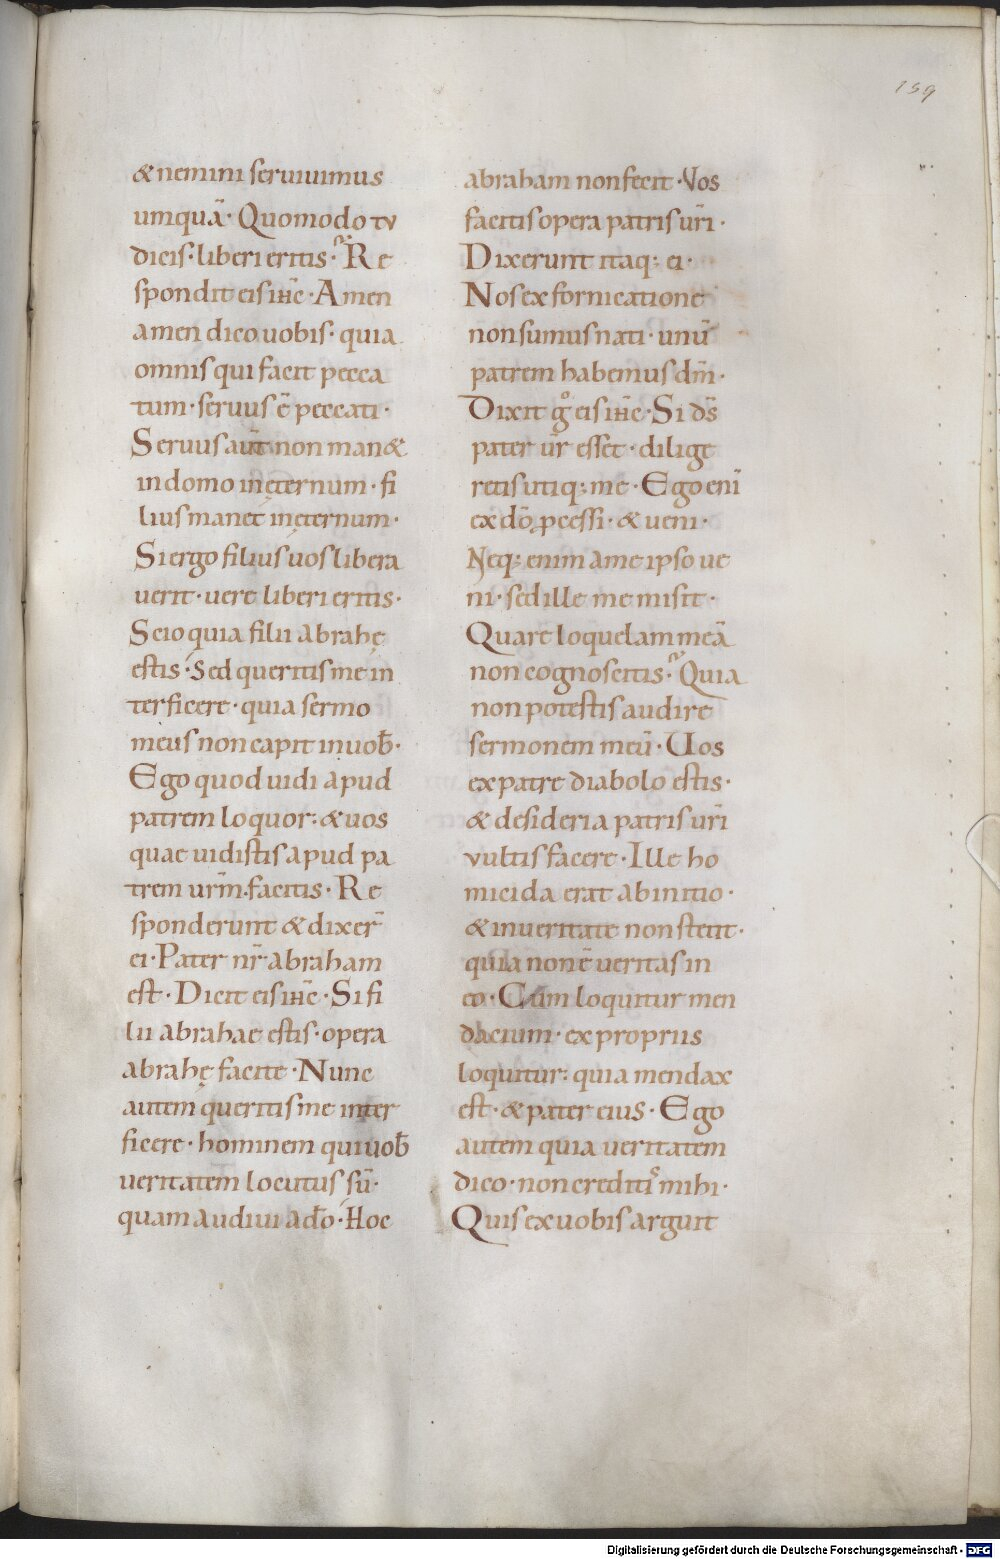 159
& nemini seruiuimus
umquā· Quomodo tu
dicis· liberi eritis· Re
spondit eis ihc̄· Amen
amen dico uobis· quia
omnis qui facit pecca
tum· seruus ē peccati·
Seruus aūt non man&
in domo inęternum· fi
lius manet inęternum·
Si ergo filius uos libera
uerit· uere liberi eritis·
Scio quia filii abrahę
estis· Sed queritis me in
terficere· quia sermo
meus non capit in uob̄·
Ego quod uidi apud
patrem loquor: & uos
quae uidistis apud pa
trem urm̄· facitis· Re
sponderunt & dixer̄
ei· Pater nr̄ abraham
est· Dicit eis ihc̄· Si fi
lii abrahae estis· opera
abrahę facite· Nunc
autem queritis me inter
ficere· hominem qui uob̄
ueritatem locutus sū·
quam audiui a do̅· Hoc
abraham non fecit· Vos
facitis opera patris uri̅·
Dixerunt itaq; ei·
Nos ex fornicatione
non sumus nati· unū
patrem habemus dm̄·
Dixit gͦ eis ihc̄· Si ds̄
pater ur̄ esset· dilige
retis utiq; me· Ego eni̅
ex do̅ ꝓcessi· & ueni·
Neq; enim a me ipso ue
ni· sed ille me misit·
Quare loquelam meā
non cognoscitis· Quia
non potestis audire
sermonem meū· Uos
ex patre diabolo estis·
& desideria patris uri̅
vultis facere· Ille ho
micida erat ab initio·
& in ueritate non stetit·
quia non ē ueritas in
eo· Cum loquitur men
dacium· ex propriis
loquitur: quia mendax
est· & pater eius· Ego
autem quia ueritatem
dico· non crediti᷒ mihi·
Quis ex uobis arguit
Digitalisierung gefördert durch die Deutsche Forschungsgemeinschaft - DFG